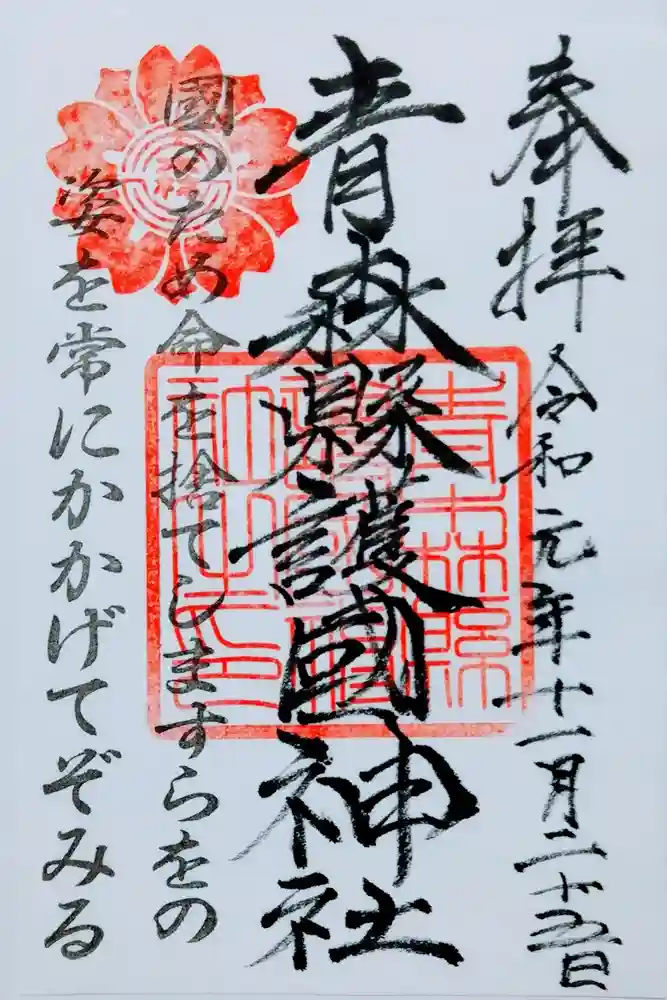 奉拝 令和元年十一月二十五日
青森縣護國神社
國のため命を捨てしますらをの
姿を常にかかげてぞみる
青森縣
護國神
社之印